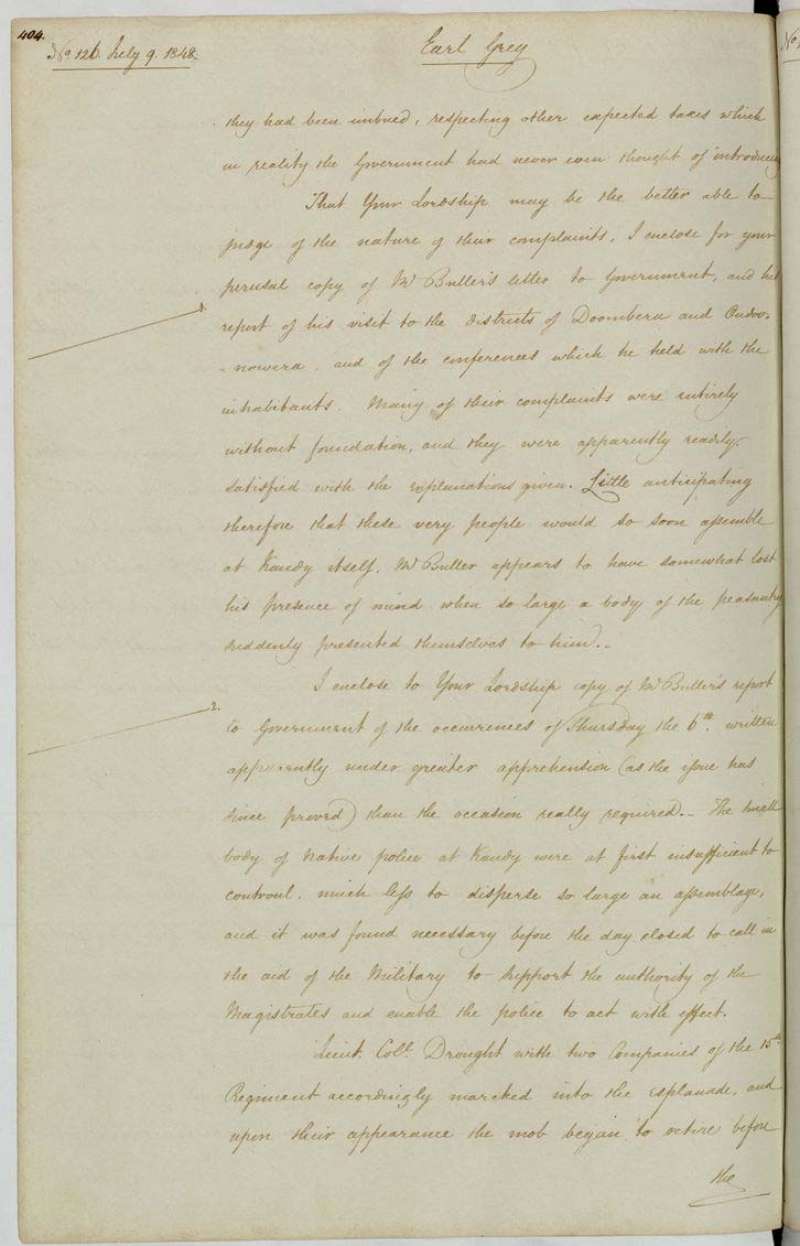 404.
No. 126. July 9. 1848.
Earl Grey
they had been imbued, respecting other expected taxes which
in reality the Government had never even thought of introducing
That Your Lordship may be the better able to
judge of the nature of their complaints, I enclose for your
perusal copy of Mr Buller's letter to Government, and his
1.
report of his visit to the districts of Doombera and Oudoo-
-nowera, and of the conferences which he held with the
inhabitants. Many of their complaints were entirely
without foundation, and they were apparently readily
satisfied with the explanations given. Little anticipating
therefore that these very people would so soon assemble
at Kandy itself, Mr Buller appears to have somewhat lost
his presence of mind when so large a body of the peasantry
suddenly presented themselves to him..
I enclose to Your Lordship copy of Mr Buller's report
2.
to Government of the occurrences of Thursday the 6th. written
apparently under greater apprehension (as the issue has
since proved) than the occasion really required.. The small
body of Native police at Kandy were at first insufficient to
controul, much less to disperse so large an assemblage,
and it was found necessary before the day closed to call in
the aid of the Military to support the authority of the
Magistrates and enable the police to act with effect.
Lieut. Coll. Drought with two Companies of the 15th
Regiment accordingly marched into the esplanade, and
upon their appearance the mob began to retire before
the